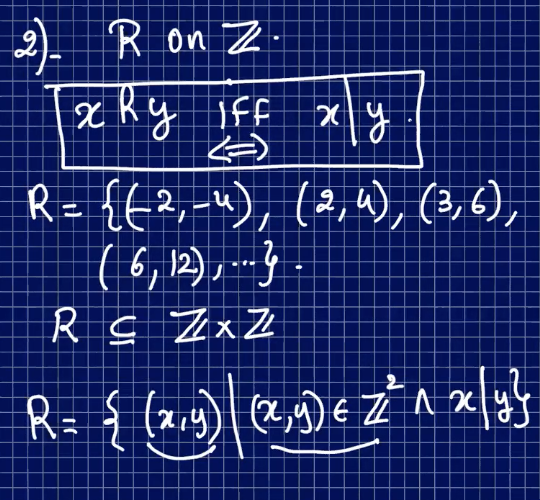 2)- R on ℤ.
x R y IFF x | y.
⇔
R = {(-2,-4), (2,4), (3,6),
(6,12), ...}.
R ⊆ ℤ×ℤ
R = { (x,y) | (x,y) ∈ ℤ² ∧ x|y}